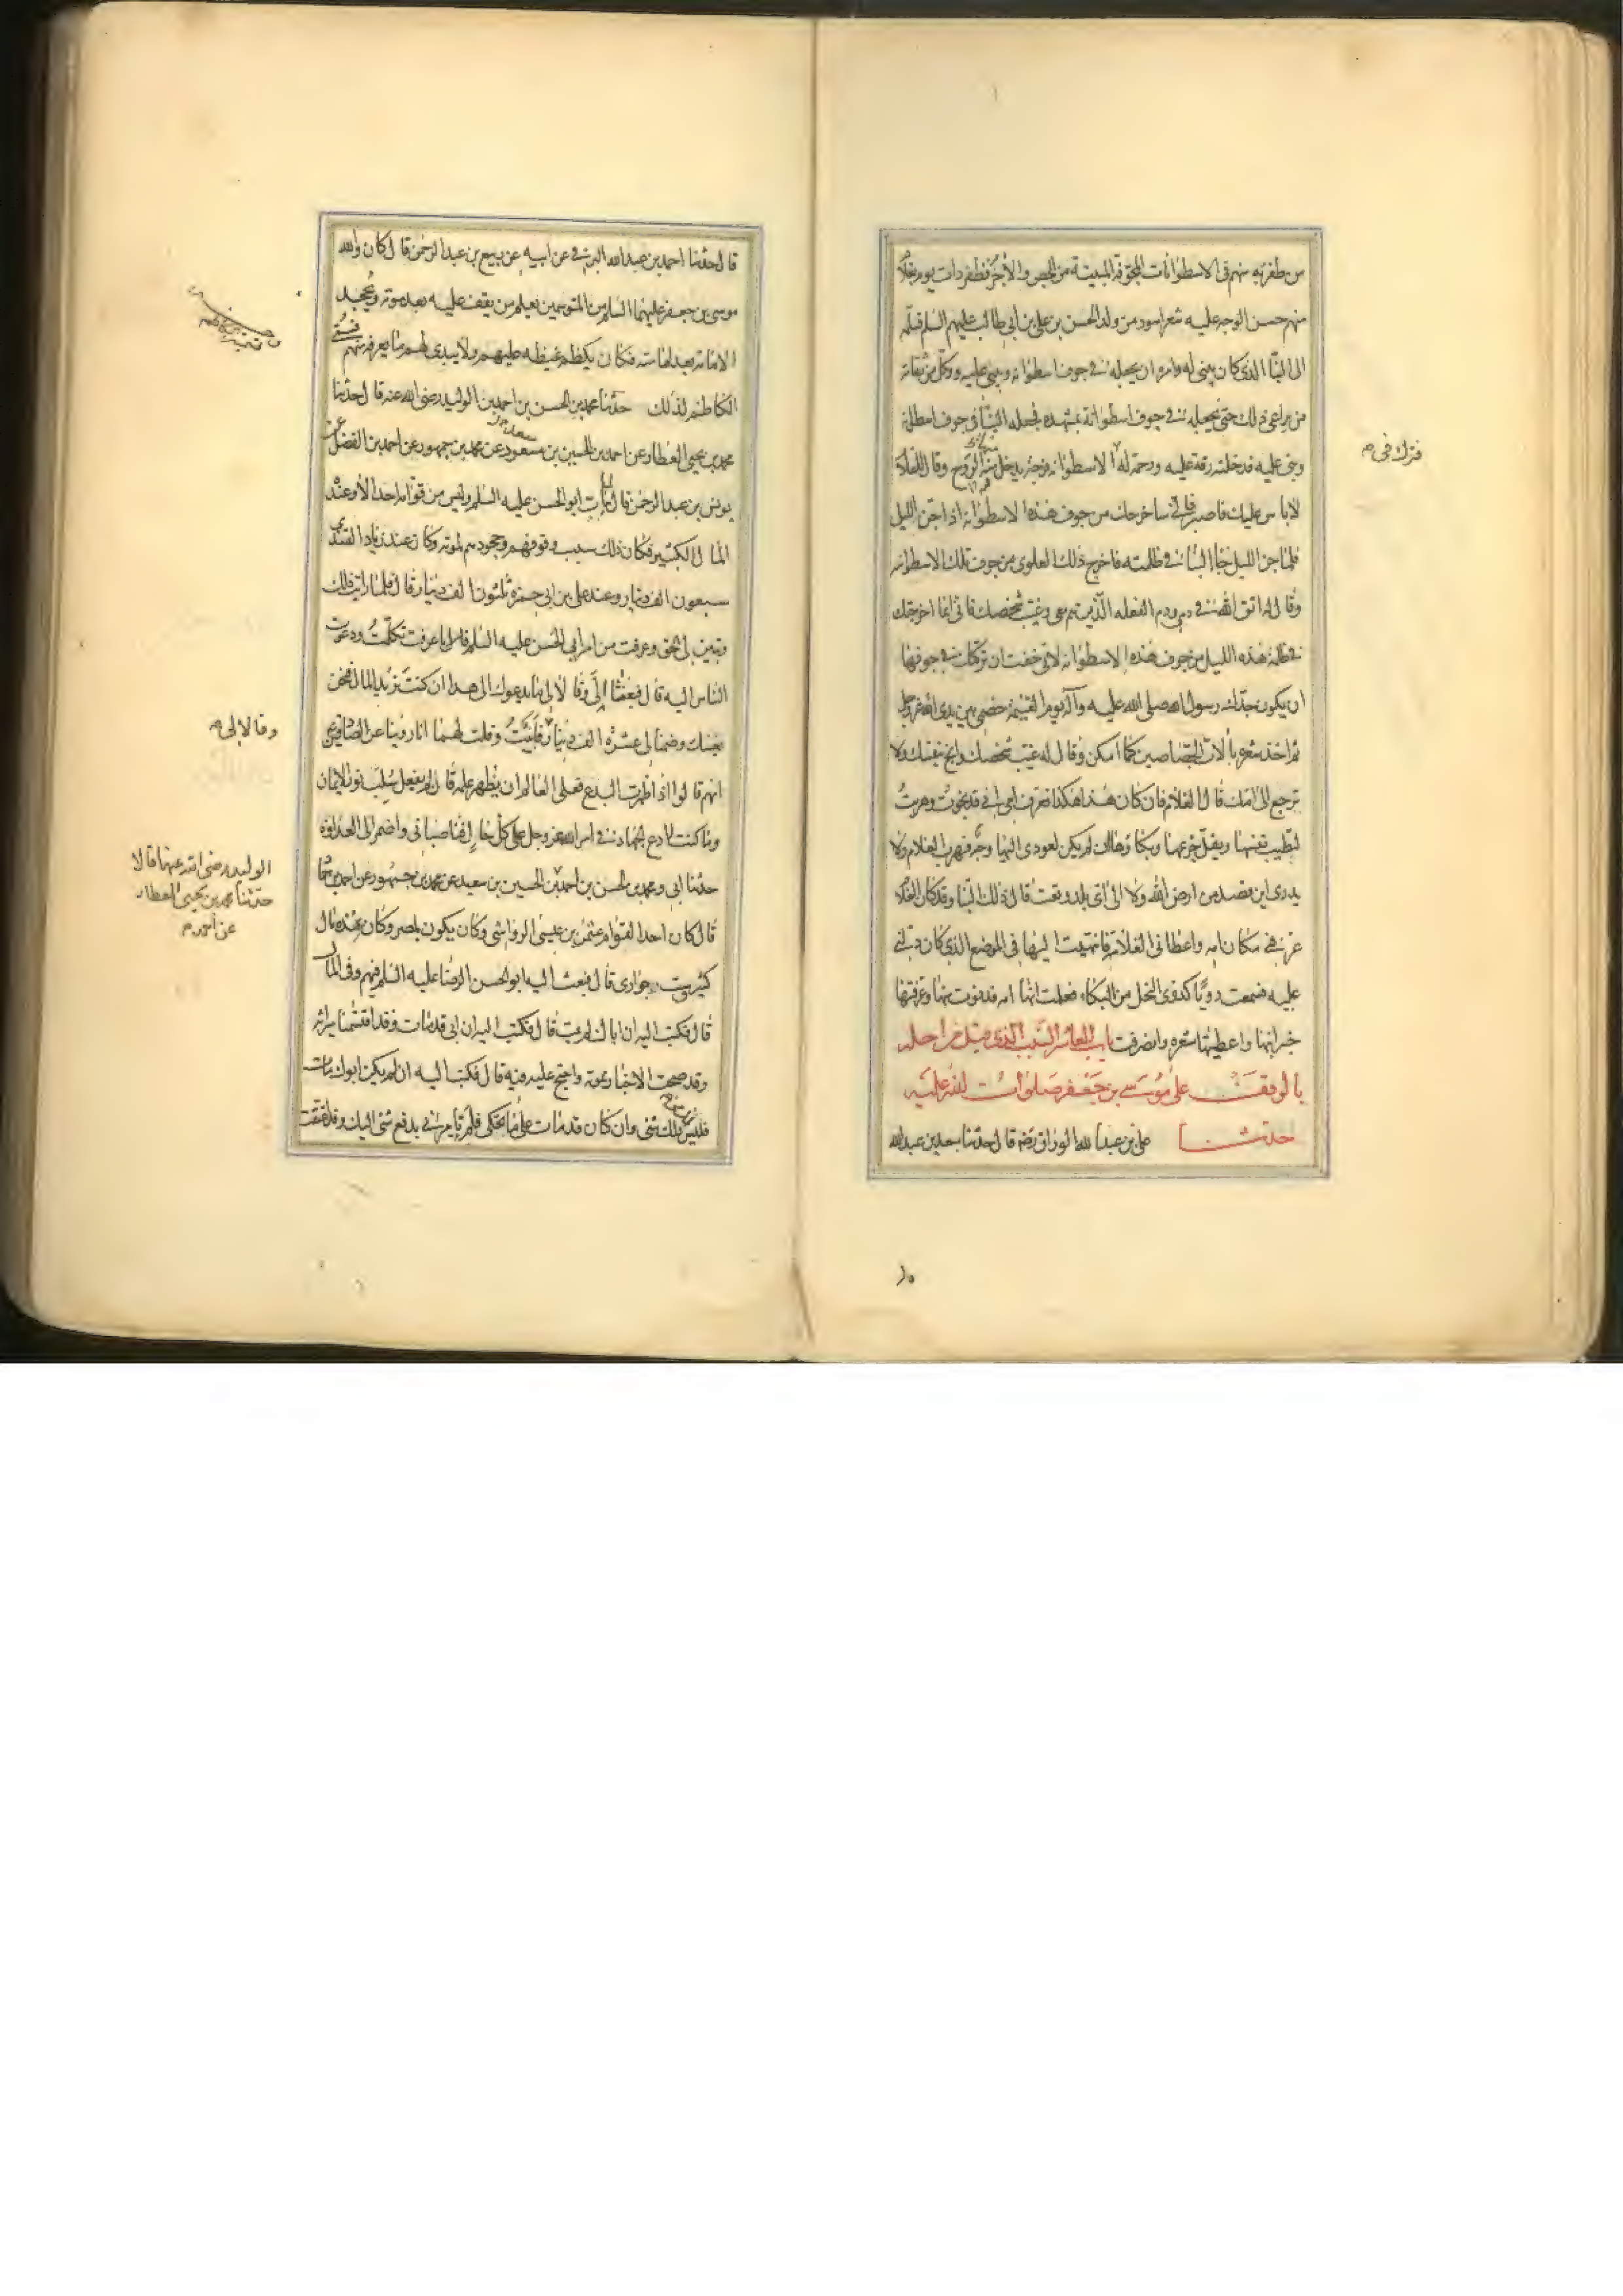 من ظفر به منهم فى الاسطوانات المجوفة المبنية من الجص والآجر فظفر ذات يوم بغلام
منهم حسن الوجه عليه شعر اسود من ولد الحسن بن على بن ابى طالب عليهم السلم فسلمه
الى البنا الذى كان يبنى له وامره ان يجعله فى جوف اسطوانة ويبنى عليه ووكل من ثقاته
من يراعى ذلك حتى يجعله فى جوف اسطوانة بمشهده فجعله البنا فى جوف اسطوانة
وبنى عليه فدخلته رقة عليه ورحمة له الاسطوانة فرجة يدخل منه الروح وقال للغلام
فترك فى م
لاباس عليك فاصبر فانى ساخرجك من جوف هذه الاسطوانة اذا جن الليل
فلما جن الليل جاء البنا فى ظلمته فاخرج ذلك العلوى من جوف تلك الاسطوانة
وقال له اتق الله فى دمى ودم الفعله الذين معى وغيب شخصك فانى انما اخرجتك
فى ظلمة هذه الليل من جوف هذه الاسطوانة لانى خفت ان تركتك فى جوفها
ان يكون جدك رسول الله صلى الله عليه وآله يوم القيمة خصمى بين يدى الله عز وجل
ثم اخذ شعره بآلات الجصاصين كما امكن وقال له غيب شخصك وانج بنفسك ولا
ترجع الى امك قال الغلام فان كان هذا هكذا فعرف امى انى قد نجوت وهربت
لتطيب نفسها ويقل جزعها وبكاؤها ان لم يكن لعودى اليها وجه فهرب الغلام ولا
يدرى اين قصد من ارض الله ولا الى اى بلد وقعت قال ذلك البنا وقد كان الغلام
عرفنى مكان امه واعطانى العلامة فانتهيت اليها فى الموضع الذى كان دلنى
عليه فسمعت دويا كدوى النحل من البكاء فعلمت انها امه فدنوت منها وعرفتها
خبر ابنها واعطيتها شعره وانصرفت باب العاشر السبب الذى قيل من اجله
بالوقف على موسى بن جعفر صلوات الله عليه
حدثنا على بن عبد الله الوراق رضه قال حدثنا سعد بن عبد الله
قال حدثنا احمد بن عبد الله البرقى عن ابيه عن ربيع بن عبد الرحمن قال كان والله
موسى بن جعفر عليهما السلم من المتوسمين يعلم من يقف عليه بعد موته ويجحد
الامامة بعد امامته فكان يكظم غيظه عليهم ولا يبدى لهم ما يعرفه منهم فسمى
الكاظم لذلك حدثنا محمد بن الحسن بن احمد بن الوليد رضى الله عنه قال حدثنا
محمد بن يحيى العطار عن احمد بن الحسين بن مسعود عن محمد بن جمهور عن احمد بن الفضل عن
يونس بن عبد الرحمن قال مات ابو الحسن عليه السلم وليس من قوامه احد الا وعنده
المال الكثير فكان ذلك سبب وقوفهم وجحودهم لموته وكان عند زياد القندى
سبعون الف دينار وعند على بن ابى حمزة ثلثون الف دينار قال فلما رايت ذلك
وتبين لى الحق وعرفت من امر ابى الحسن عليه السلم ما عرفت تكلمت ودعوت
الناس اليه قال فبعثا الى وقالا لى ما يدعوك الى هذا ان كنت تريد المال فنحن
وقالا لى م
نغنيك وضمنا لى عشرة الف دينار فابيت وقلت لهما انا روينا عن الصادقين
انهم قالوا اذا ظهرت البدع فعلى العالم ان يظهر علمه فان لم يفعل سلب نور الايمان
وما كنت لادع الجهاد فى امر الله عز وجل على كل حال فناصبانى واضمرا لى العداوة
حدثنا ابى ومحمد بن الحسن بن احمد بن الحسين بن سعيد عن محمد بن جمهور عن احمد بن حماد
الوليد رضى الله عنهما قالا
حدثنا محمد بن يحيى العطار
عن احمد م
قال كان احد القوام عثمن بن عيسى الرواسى وكان يكون بمصر وكان عنده مال
كثير وست جوارى قال فبعث اليه ابو الحسن الرضا عليه السلم فيهم وفى المال
قال فكتب اليه ان اباك لم يمت قال فكتب اليه ان ابى قد مات وقد اقتسمنا ميراثه
وقد صحت الاخبار بموته واحتج عليه فيه قال فكتب اليه ان لم يكن ابوك مات
فليس لك شئ وان كان قد مات على ما تحكى فلم يامرنى بدفع شئ اليك وقد اعتقت